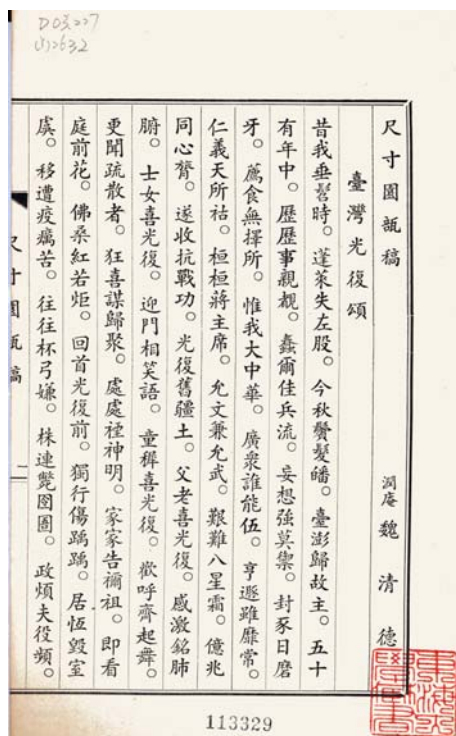 D03227
(5)2632
尺寸園瓿稿
潤庵 魏清德
臺灣光復頌
昔我垂髫時。蓬萊失左股。今秋鬢髮皤。臺澎歸故主。五十
有年中。歷歷事親覩。蠢爾佳兵流。妄想強莫禦。封豕日磨
牙。薦食無擇所。惟我大中華。廣衆誰能伍。亨遯雖靡常。
仁義天所祜。桓桓蔣主席。允文兼允武。艱難八星霜。億兆
同心膂。遂收抗戰功。光復舊疆土。父老喜光復。感激銘肺
腑。士女喜光復。迎門相笑語。童穉喜光復。歡呼齊起舞。
更聞疏散者。狂喜謀歸聚。處處禋神明。家家告禰祖。即看
庭前花。佛桑紅若炬。回首光復前。獨行傷踽踽。居恆毀室
虞。移遭疫癘苦。往往杯弓嫌。株連斃囹圄。政煩夫役頻。
尺寸園瓿稿
一
113329